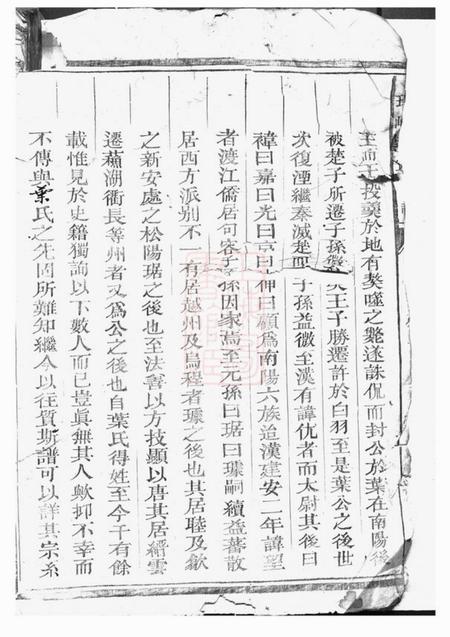 王而王投羹於地有獒噬之斃遂誅侃而封公於葉在南陽後
被楚子所遷子孫 王子勝遷許於白羽至是葉公之後世
次復湮繼秦滅楚 子孫益微至漢有諱仇者而太尉其後曰
禕曰嘉曰光曰 曰 曰顧為南陽六族迨漢建安二年諱望
者渡江僑居句容子孫因家焉至元孫曰琚曰璩嗣續益蕃散
居西方派别不一有居越州及烏程者璩之後也其居睦及歙
之新安處之松陽琚之後也至法善以方技顯以唐其居縉雲
遷蘇湖衢長等州者又為公之後也自葉氏得姓至今千有餘
載惟見於史籍獨詢以下數人而已豈真無其人歟抑不幸而
不傳與葉氏之先固所難知繼今以往質斯譜可以詳其宗系